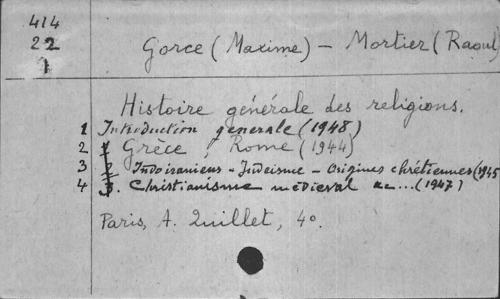 414
22
1
Gorce (Maxime) - Mortier (Raoul)
Histoire générale des religions.
1 Introduction generale (1948)
2 Grèce, Rome (1944)
3 2. Indoiraniens - Judeisme - Origines chrétiennes (1945
4 3. Christianisme medieval ... (1947)
Paris, A. Quillet, 4º.